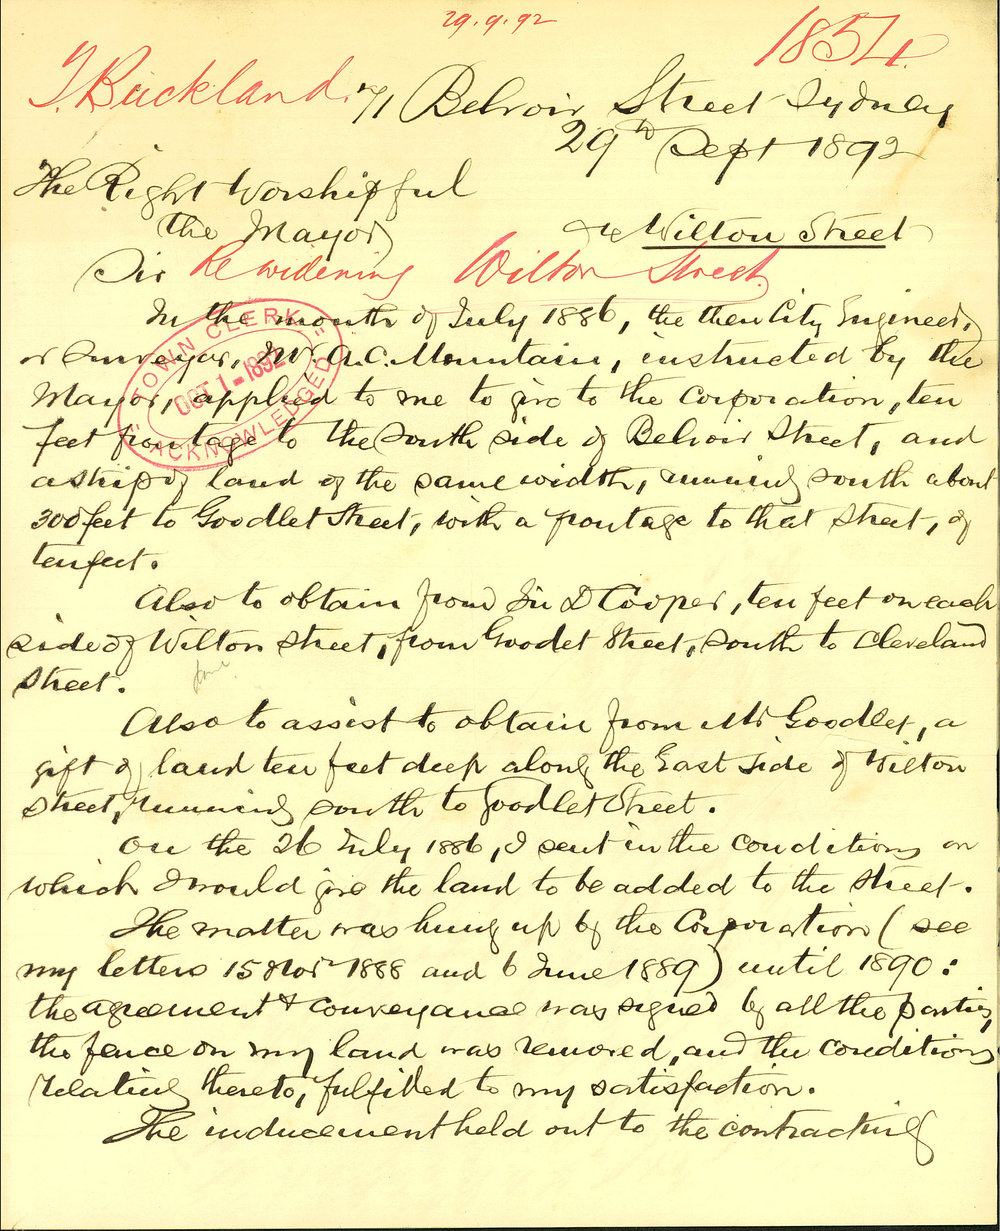 29.9.92
1854.
T. Buckland.
71 Belvoir Street Sydney
29th Sept 1892
The Right Worshipful
the Mayor
Wilton Street
Sir Re widening Wilton Street.
In the month of July 1886, the then City Engineer,
or Surveyor, Mr. A. C. Mountain, instructed by the
Mayor, applied to me to give to the Corporation, ten
feet frontage to the South side of Belvoir Street, and
a strip of land of the same width, running south about
300 feet to Goodlet Street, with a frontage to that street, of
ten feet.
TOWN CLERK
OCT 1 - 1892
"ACKNOWLEDGED"
Also to obtain from Sir D Cooper, ten feet on each
side of Wilton street, from Goodlet Street, south to Cleveland
Street.
Also to assist to obtain from Mr Goodlet, a
gift of land ten feet deep along the East side of Wilton
street, running south to Goodlet Street.
On the 26 July 1886, I sent in the conditions on
which I would give the land to be added to the street.
The matter was hung up by the Corporation (see
my letters 15 Nov 1888 and 6 June 1889) until 1890:
the agreement & conveyance was signed by all the parties,
the fence on my land was removed, and the conditions
relating thereto, fulfilled to my satisfaction.
The inducement held out to the contracting